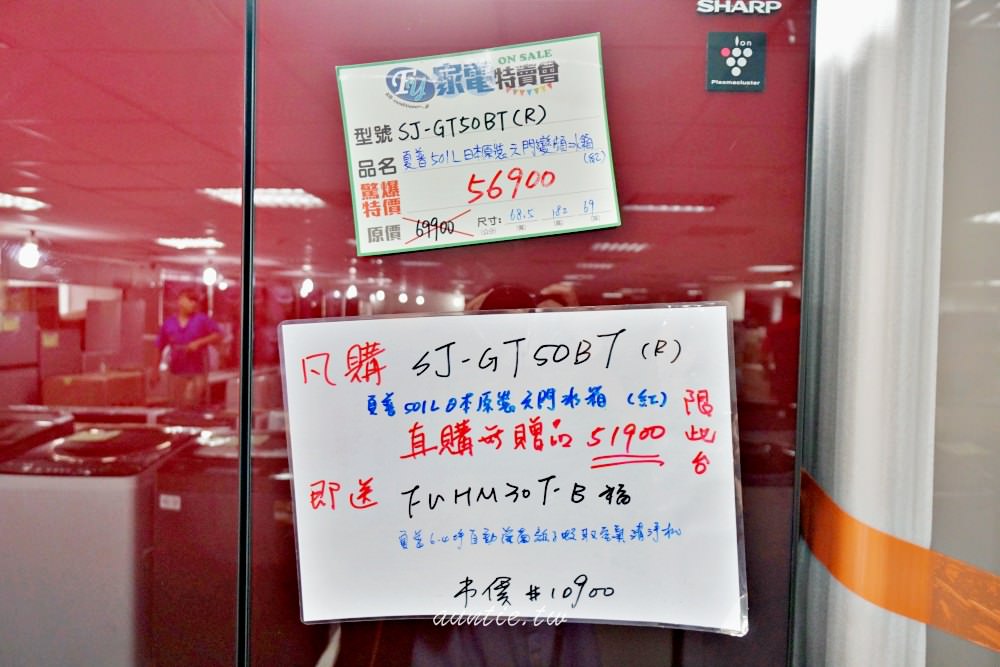 SHARP
Ion
Plasmacluster
Fu 家電特賣會 ON SALE
型號 SJ-GT50BT(R)
品名 夏普501L日本原裝六門變頻冰箱(紅)
驚爆特價 56900
原價 69900 尺寸: 68.5 182 69
凡購 SJ-GT50BT (R)
夏普501L日本原裝六門冰箱 (紅)
直購無贈品 51900
限此台
即送 FU-HM30T-B 福
市價 #10900
auntie.tw